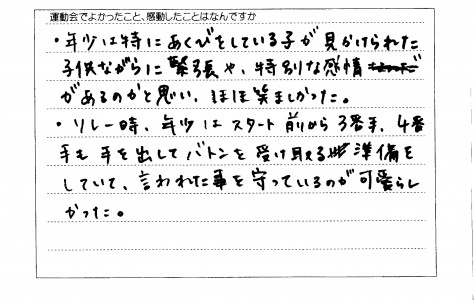 運動会でよかったこと、感動したことはなんですか
・年少は特にあくびをしている子が見かけられた
子供ながらに緊張や、特別な感情
があるのかと思い、ほほ笑ましかった。
・リレー時、年少はスタート前から3番手、4番
手も手を出してバトンを受け取える準備を
していて、言われた事を守っているのが可愛らし
かった。